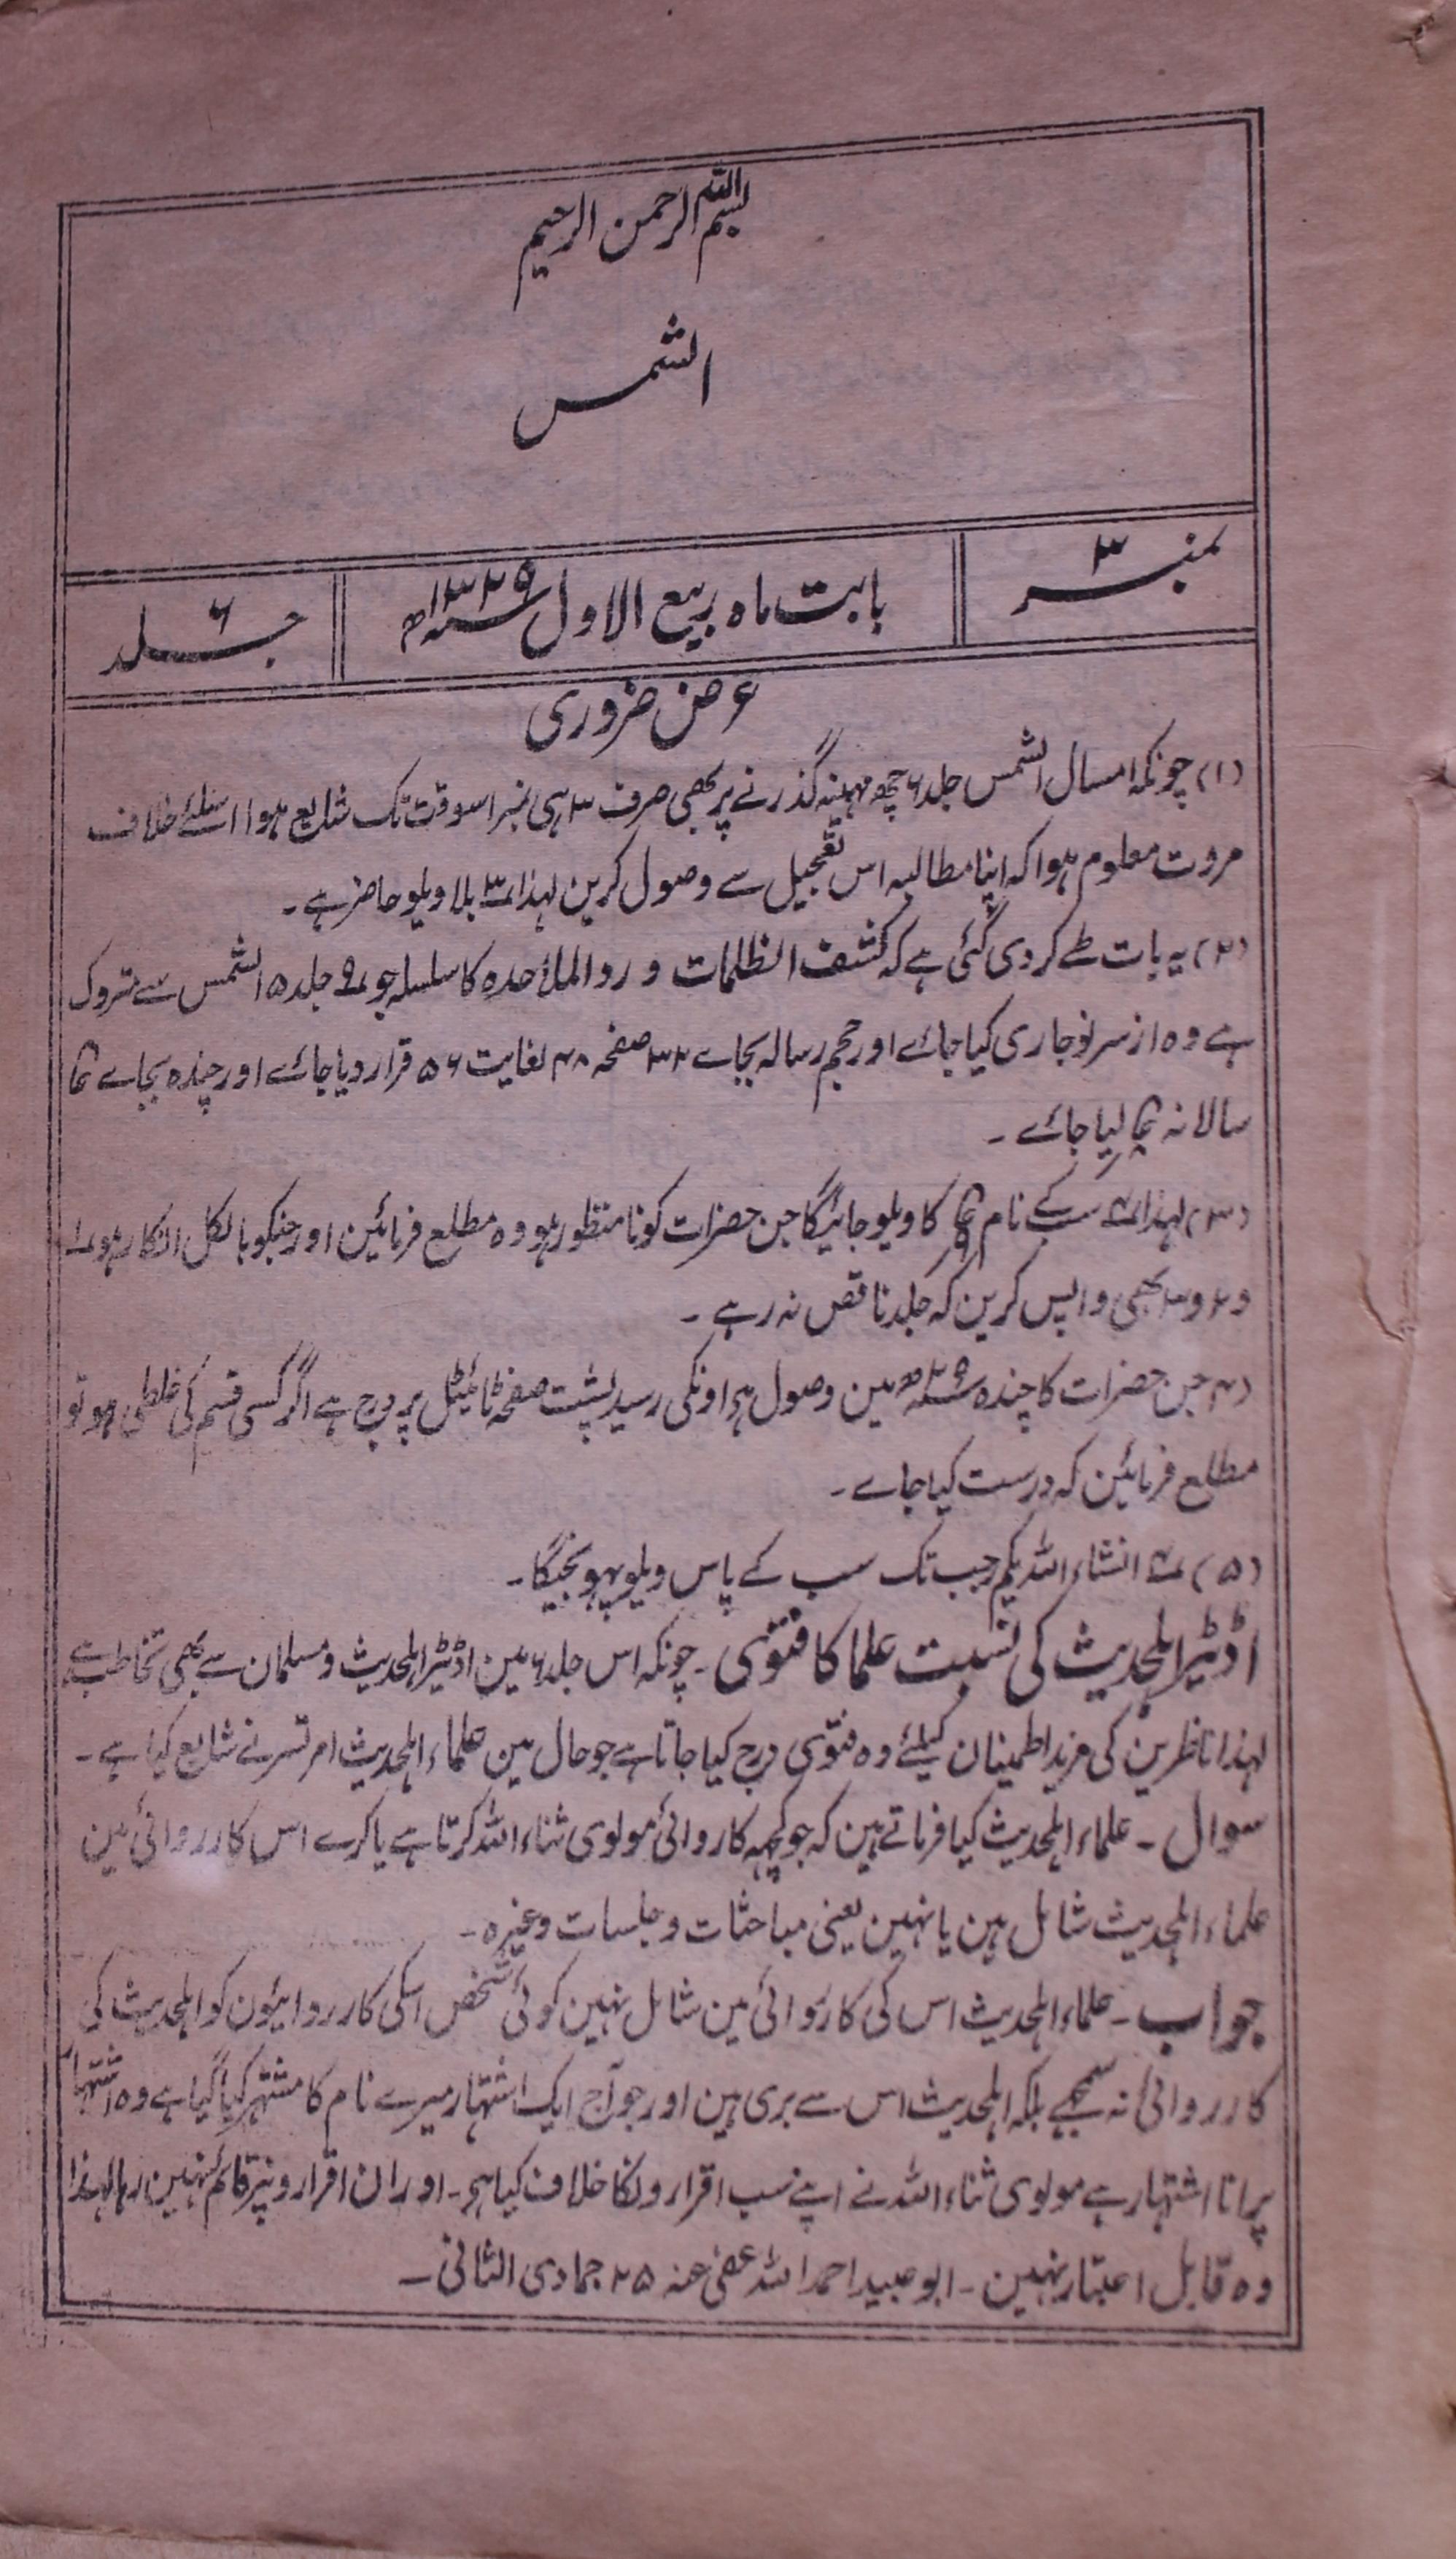 بسم اللہ الرحمن الرحیم
الشمس
نمبر ۳
بابت ماہ ربیع الاول سنہ ۱۳۲۹ھ
جلد ۶
عرض ضروری
(۱) چونکہ امسال الشمس جلد ۶ چھ مہینہ گذرنے پر بھی صرف ۳ ہی نمبر اسوقت تک شایع ہوا اسلئے خلاف
مروت معلوم ہوا کہ اپنا مطالبہ اس تعجیل سے وصول کرین لہذا نمبر ۳ بلا ویلو حاضر ہے۔
(۲) یہ بات طے کر دی گئی ہے کہ کشف الظلمات و رد الملاحدہ کا سلسلہ جو نمبر ۹ جلد ۵ الشمس سے متروک
ہے وہ از سر نو جاری کیا جائے اور حجم رسالہ بجاے ۳۲ صفحہ ۴۸ لغایت ۵۶ قرار دیا جائے اور چندہ بجاے
سالانہ لیا جائے۔
(۳) لہذا نمبر ۴ سب کے نام کا ویلو جائیگا جن حضرات کو نامنظور ہو وہ مطلع فرمائین اور جنکو بالکل انکار ہو نمبر ۱
و ۲ و ۳ بھی واپس کرین کہ جلد ناقص نہ رہے۔
(۴) جن حضرات کا چندہ سنہ ۲۹ھ مین وصول ہوا اونکی رسید پشت صفحہ ٹائیٹل پر درج ہے اگر کسی قسم کی غلطی ہو تو
مطلع فرمائین کہ درست کیا جاے۔
(۵) نمبر ۴ انشاء اللہ یکم رجب تک سب کے پاس ویلو پہونچیگا۔
اڈیٹر اہلحدیث کی نسبت علما کا فتوی۔ چونکہ اس جلد ۶ مین اڈیٹر اہلحدیث و مسلمان سے بھی تخاطب ہے
لہذا ناظرین کی مزید اطمینان کیلئے وہ فتوی درج کیا جاتا ہے جو حال مین علماء اہلحدیث امرتسر نے شایع کیا ہے۔
سوال۔ علماء اہلحدیث کیا فرماتے ہین کہ جو کچہہ کاروائی مولوی ثناء اللہ کرتا ہے یا کرے اس کارروائی مین
علماء اہلحدیث شامل ہین یا نہین یعنی مباحثات و جلسات وغیرہ۔
جواب۔ علماء اہلحدیث اس کی کاروائی مین شامل نہین کوئی شخص اسکی کارروائیون کو اہلحدیث کی
کارروائی نہ سمجھے بلکہ اہلحدیث اس سے بری ہین اور جو آج ایک اشتہار میرے نام کا مشتہر کیا گیا ہے وہ اشتہار
پرانا اشتہار ہے مولوی ثناء اللہ نے اپنے سب اقرارونکا خلاف کیا ہے۔ اور ان اقرارونپر قائم نہین رہا لہذا
وہ قابل اعتبار نہین۔ ابو عبید احمد اللہ عفی عنہ ۲۵ جمادی الثانی۔